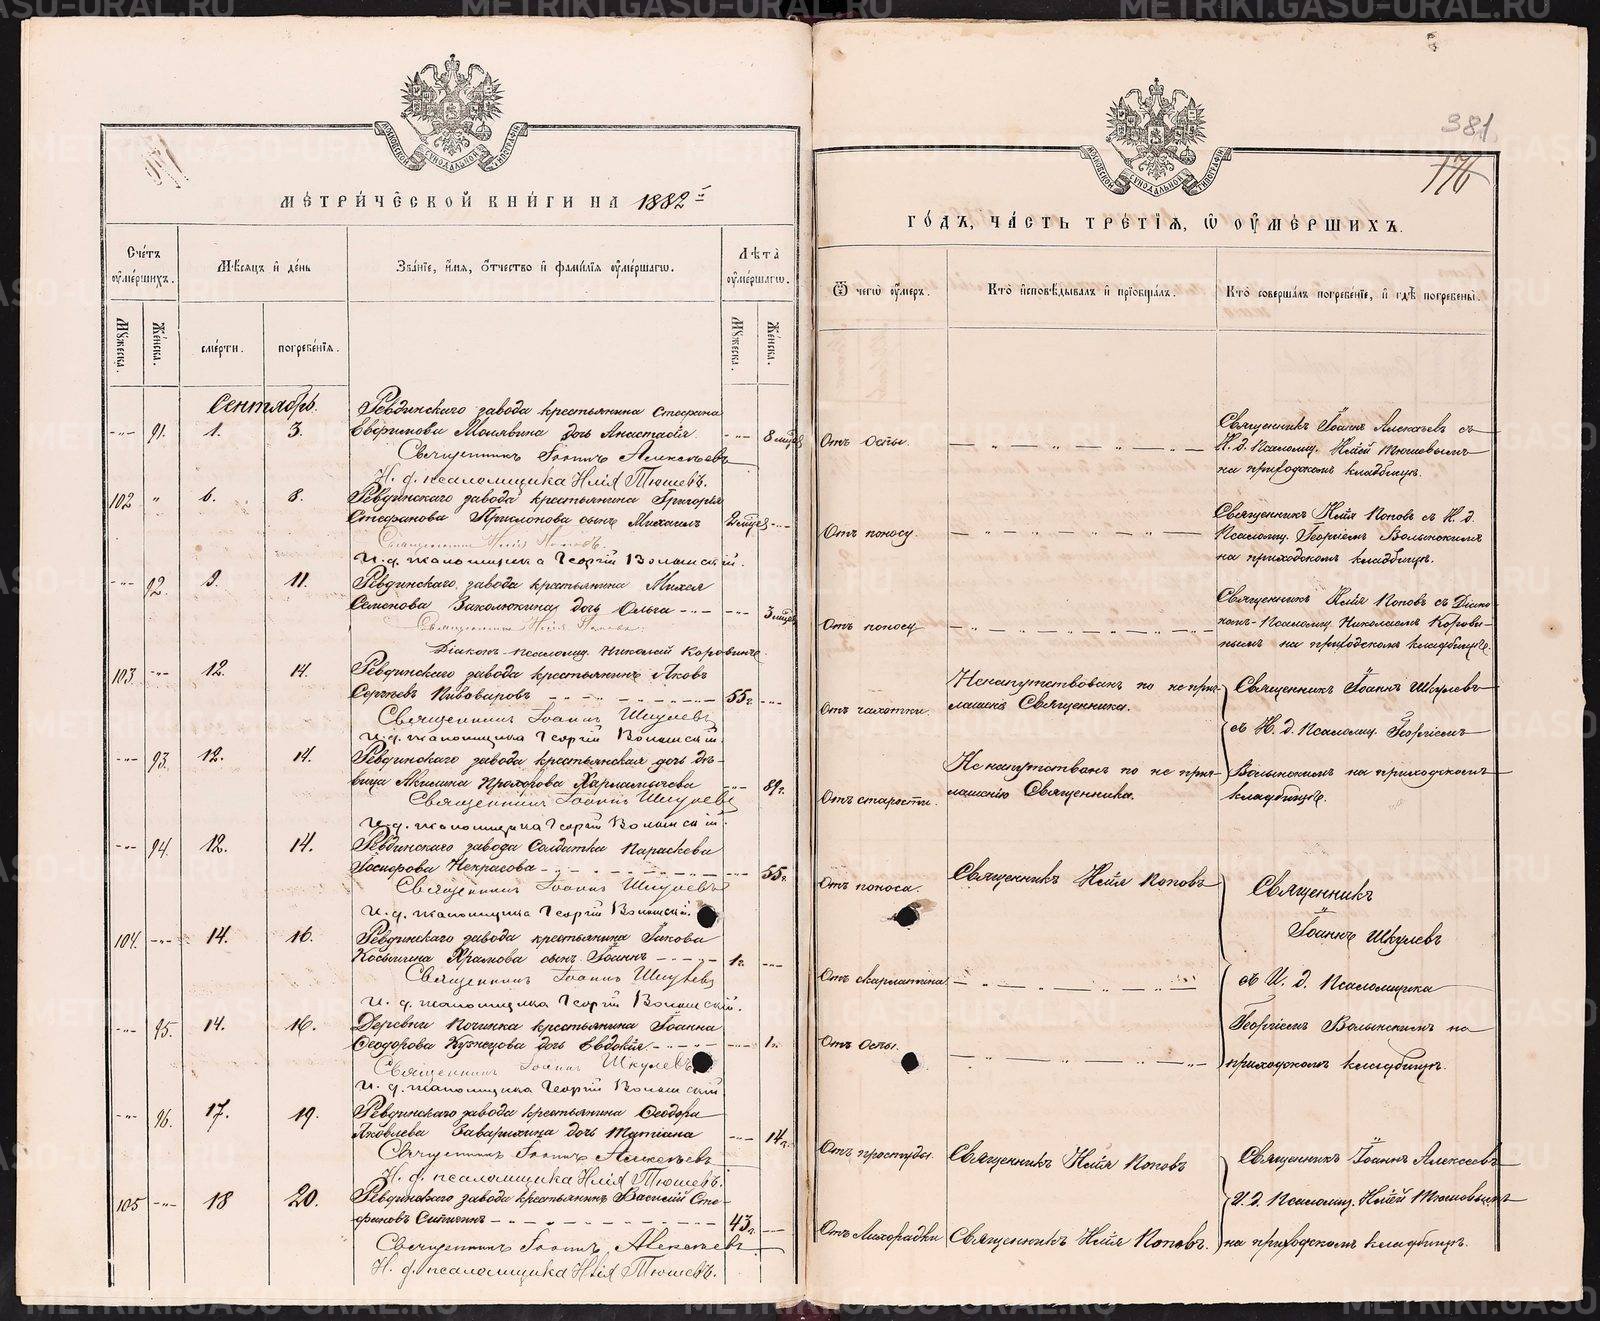 METRIKI.GASU-URAL.RU
МОСКОВСКОЙ СѴНОДАЛЬНОЙ ТИПОГРАФІИ
МЕТРИЧЕСКОЙ КНИГИ НА 1882 й
Счетъ оумершихъ.
Мѣсяцъ и день
Званіе, имя, отчество и фамилія оумершагѡ.
Лѣта оумершагѡ.
Мꙋжеска.
Женска.
смерти.
погребенія.
Мꙋжеска.
Женска.
Сентябрь.
91. 1. 3. Ревдинскаго завода крестьянина Стефана
Евфимова дочь Анастасія 8 мцевъ
Священникъ Іоаннъ Алексѣевъ
И. д. псаломщика Илія Тюшевъ.
102 6. 8. Ревдинскаго завода крестьянина Григорія
Стефанова сынъ Михаилъ 2 мцевъ
Священникъ Илія Поповъ.
И. д. псаломщика Георгій Волынскій.
92. 9. 11. Ревдинскаго завода крестьянина
Семенова дочь Ольга 3 мцевъ
Священникъ Илія Поповъ
Діаконъ-псаломщ. Николай Коровинъ.
103 12. 14. Ревдинскаго завода крестьянинъ Яковъ
Сергѣевъ Пивоваровъ 55 г.
Священникъ Іоаннъ Шкулевъ
И. д. псаломщика Георгій Волынскій.
93. 12. 14. Ревдинскаго завода крестьянская дочь дѣ-
вица Акилина Прохорова 89 г.
Священникъ Іоаннъ Шкулевъ
И. д. псаломщика Георгій Волынскій.
94. 12. 14. Ревдинскаго завода Солдатка Параскева
Некрасова 55 г.
Священникъ Іоаннъ Шкулевъ
И. д. псаломщика Георгій Волынскій
104. 14. 16. Ревдинскаго завода крестьянина Іакова
Храмова сынъ Іоаннъ 1 г.
Священникъ Іоаннъ Шкулевъ
И. д. псаломщика Георгій Волынскій.
95. 14. 16. Деревни Починка крестьянина Іоанна
Ѳеодорова Кузнецова дочь Евдокія 1 г.
Священникъ Іоаннъ Шкулевъ
И. д. псаломщика Георгій Волынскій
96. 17. 19. Ревдинскаго завода крестьянина Ѳеодора
Яковлева дочь Татіана 14 г.
Священникъ Іоаннъ Алексѣевъ
И. д. псаломщика Илія Тюшевъ.
105 18 20. Ревдинскаго завода крестьянинъ Василій Сте-
фановъ 43 г.
Священникъ Іоаннъ Алексѣевъ
И. д. псаломщика Илія Тюшевъ.
381
176
МОСКОВСКОЙ СѴНОДАЛЬНОЙ ТИПОГРАФІИ
ГОДЪ, ЧАСТЬ ТРЕТІЯ, Ѡ ОУМЕРШИХЪ.
Ѿ чегѡ оумеръ.
Кто исповѣдывалъ и пріобщалъ.
Кто совершалъ погребеніе, и гдѣ погребены.
Отъ Оспы.
Священникъ Іоаннъ Алексѣевъ съ
И. д. Псаломщ. Иліей Тюшевымъ
на приходскомъ кладбищѣ.
Отъ поносу
Священникъ Илія Поповъ съ И. д.
Псаломщ. Георгіемъ Волынскимъ
на приходскомъ кладбищѣ.
Отъ поносу
Священникъ Илія Поповъ съ Діако-
номъ-Псаломщ. Николаемъ Корови-
нымъ на приходскомъ кладбищѣ.
Отъ чахотки.
Ненапутствованъ по не при-
глашенію Священника.
Священникъ Іоаннъ Шкулевъ
съ И. д. Псаломщ. Георгіемъ
Волынскимъ на приходскомъ
кладбищѣ.
Отъ старости.
Не напутствована по не при-
глашенію Священника.
Отъ поноса.
Священникъ Илія Поповъ
Священникъ
Іоаннъ Шкулевъ
съ И. д. Псаломщика
Георгіемъ Волынскимъ на
приходскомъ кладбищѣ.
Отъ скарлатина
Отъ Оспы.
Отъ простуды.
Священникъ Илія Поповъ
Священникъ Іоаннъ Алексеевъ
И. д. Псаломщ. Иліей Тюшевымъ
на приходскомъ кладбищѣ.
Отъ Лихорадки
Священникъ Илія Поповъ.
METRIKI.GASU-URAL.RU